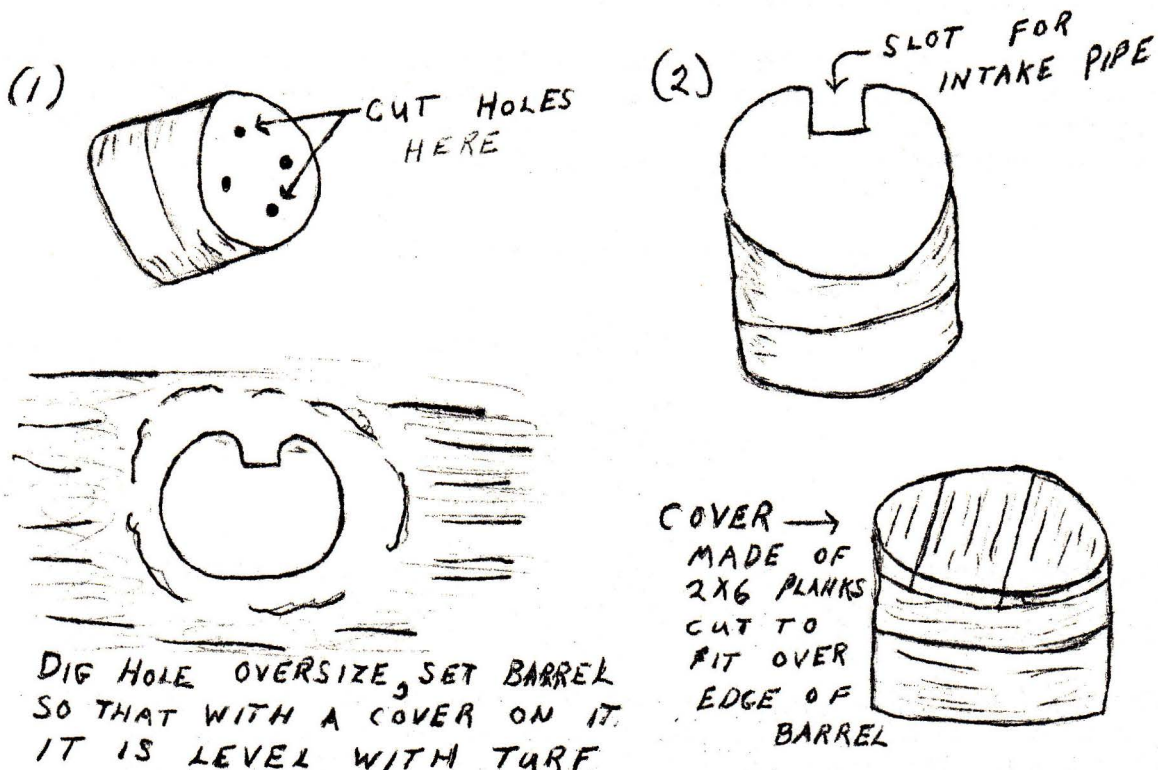 (1)
CUT HOLES
HERE
(2)
SLOT FOR
INTAKE PIPE
DIG HOLE OVERSIZE, SET BARREL
SO THAT WITH A COVER ON IT
IT IS LEVEL WITH TURF
COVER →
MADE OF
2X6 PLANKS
CUT TO
FIT OVER
EDGE OF
BARREL